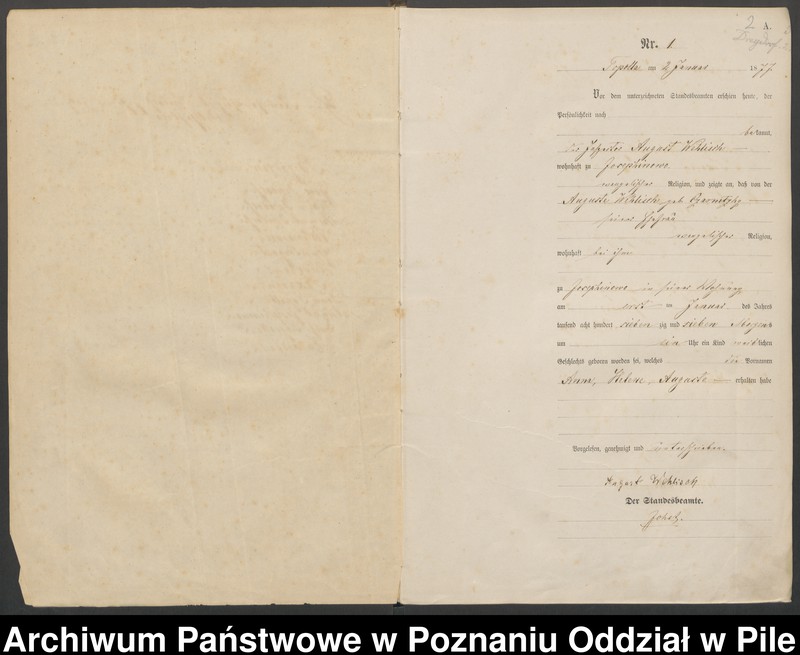 2 A.
Nr. 1
am 2 Januar 1877
Vor dem unterzeichneten Standesbeamten erschien heute, der
Persönlichkeit nach
bekannt,
August Wehlisch
wohnhaft zu Josephinowo
evangelischer Religion, und zeigte an, daß von der
Auguste Wehlisch geb.
seiner Ehefrau
evangelischer Religion,
wohnhaft bei ihm
zu Josephinowo in seiner Wohnung
am erst en Januar des Jahres
tausend acht hundert sieben zig und sieben Morgens
um ein Uhr ein Kind weiblichen
Geschlechts geboren worden sei, welches die Vornamen
Anna, Helene, Auguste erhalten habe
Vorgelesen, genehmigt und unterschrieben
August Wehlisch
Der Standesbeamte.
Archiwum Państwowe w Poznaniu Oddział w Pile